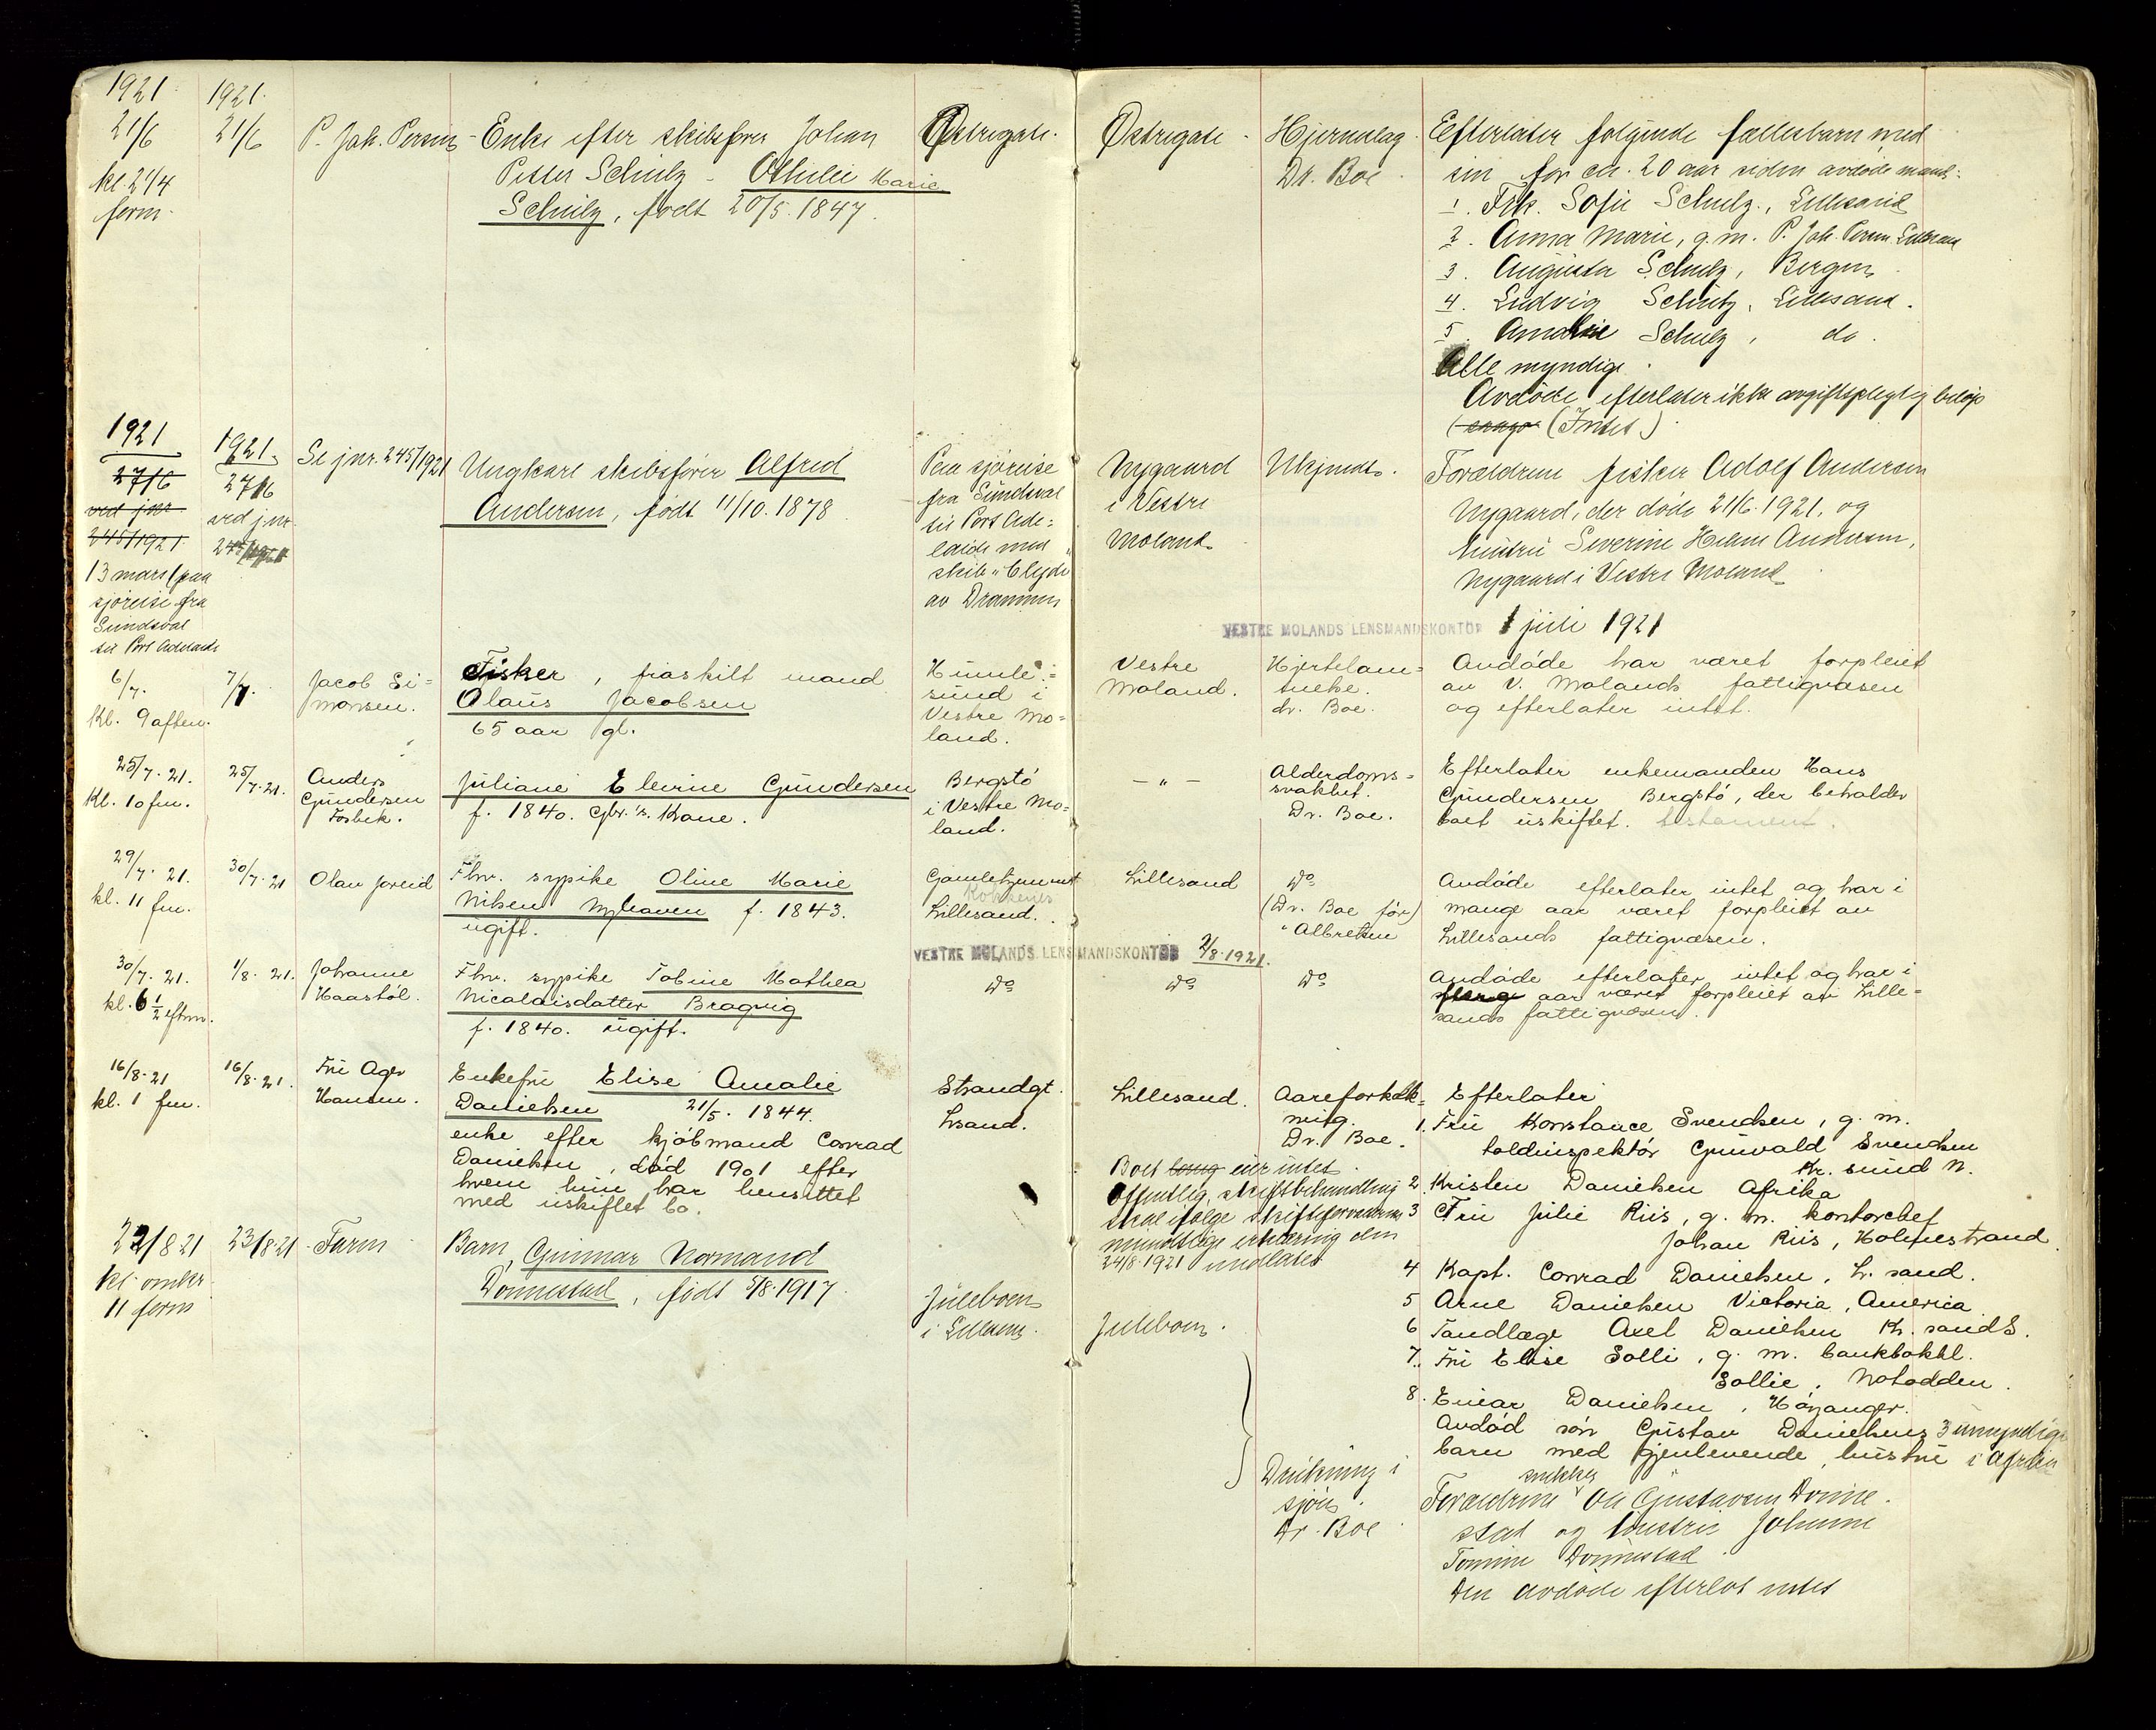 1921
21/6
kl. 2 1/4
form.
1921.
21/6
P. Joh. Persen
Enke efter skibsfører Johan
Petter Schulz - Othilie Marie
Schulz, født 20/5. 1847.
Østregate.
Østregate
Hjerneslag.
Dr. Boe
Efterlater følgende fællesbarn med
sin for ca. 20 aar siden avdøde mand:
1. Frk. Sofie Schulz, Lillesand
2. Anna Marie, g.m. P. Joh. Persen Lillesand
3. Augusta Schulz, Bergen
4. Ludvig Schulz, Lillesand.
5. Amalie Schulz, do.
Alle myndige.
Avdøde efterlater ikke avgiftspligtig beløp
(Intet)
1921
27/6
ved jnr
245/1921
13 mars (paa
sjøreise fra
Sundsval
til Port Adelaide
1921.
27/6
ved jnr
245/1921
Se jnr. 245/1921
Ungkarl skibsfører Alfred
Andersen, født 11/10. 1878
Paa sjøreise
fra Sundsval
til Port Ade=
laide med
skib "Clyde"
av Drammen
Nygaard
i Vestre
Moland.
Ukjendt.
Forældrene fisker Adolf Andersen
Nygaard, der døde 21/6. 1921, og
hustru Severine Helene Andersen,
Nygaard i Vestre Moland
VESTRE MOLANDS LENSMANDSKONTOR 1 juli 1921
6/7.
Kl. 9 aften.
7/7.
Jacob Si=
monsen.
Fisker, fraskilt mand
Olaus Jacobsen
65 aar gl.
Humle=
sund i
Vestre Mo=
land.
Vestre
Moland.
Hjertelam=
melse.
dr. Boe.
Avdøde har været forpleiet
av V. Molands fattigvæsen
og efterlater intet.
25/7. 21.
Kl. 10 fm.
25/7. 21.
Anders
Gundersen
Fosbek.
Juliane Elevine Gundersen
f. 1840. Gbr. Kone.
Bergstø
i Vestre Mo=
land.
— " —
Alderdoms=
svakhet.
Dr. Boe.
Efterlater enkemanden Hans
Gundersen Bergstø, der beholder
boet uskiftet. testament.
29/7. 21.
kl. 11 fm.
30/7. 21
Olav Joreid
Fhv. sypike Oline Marie
Nilsen Nyhaven f. 1843.
ugift.
Gamlehjemmet
Lillesand.
Lillesand
Do
(Dr. Boe før)
" Albretsen
Avdøde efterlater intet og har i
mange aar været forpleiet av
Lillesands fattigvæsen.
VESTRE MOLANDS LENSMANDSKONTOR 2/8. 1921.
30/7. 21.
kl. 6 1/2 eftm.
1/8. 21.
Johanne
Haastøl.
Fhv. sypike Tobine Mathea
Nicolaisdatter Bragvig
f. 1840. ugift.
Do
Do
Do
Avdøde efterlater intet og har i
flere aar været forpleiet av Lille=
sands fattigvæsen.
16/8. 21
kl. 1 fm.
16/8. 21.
Fru Ager
Hansen.
Enkefru Elise Amalie
Danielsen 21/5. 1844.
enke efter kjøbmand Conrad
Danielsen, død 1901 efter
hvem hun har hensittet
med uskiftet bo.
Strandgt.
Lsand.
Lillesand.
Aareforkalk=
ning.
Dr. Boe.
Boet eier intet.
Offentlig skiftebehandling
skal ifølge skifteforvalterens
mundtlige erklæring den
24/8. 1921 undlates
Efterlater
1. Fru Konstance Svendsen, g. m.
toldinspektør Gunvald Svendsen
Kr. sund N.
2. Kristen Danielsen Afrika
3 Fru Julie Riis, g. m. kontorchef
Johan Riis, Holmestrand.
4 Kapt. Conrad Danielsen, L. sand.
5 Arne Danielsen Victoria, America
6 Tandlæge Axel Danielsen Kr. sand S.
7. Fru Elise Solli, g. m. bankbokhl.
Sollie, Notodden.
8. Einar Danielsen, Høyanger.
Avdød søn Gustav Danielsens 3 umyndige
barn med gjenlevende hustru i Afrika
22/8 21
kl. omkr.
11 form
23/8 21
Farm
Barn, Gunnar Normand
Dønnestad, født 5/8. 1917.
Juleboen
i Lillesand.
Juleboen.
Drukning i
sjøen.
Dr. Boe
Forældrene snekker Ole Gustavsen Dønne=
stad og hustru Johanne
Tomine Dønnestad.
Den avdøde efterlot intet